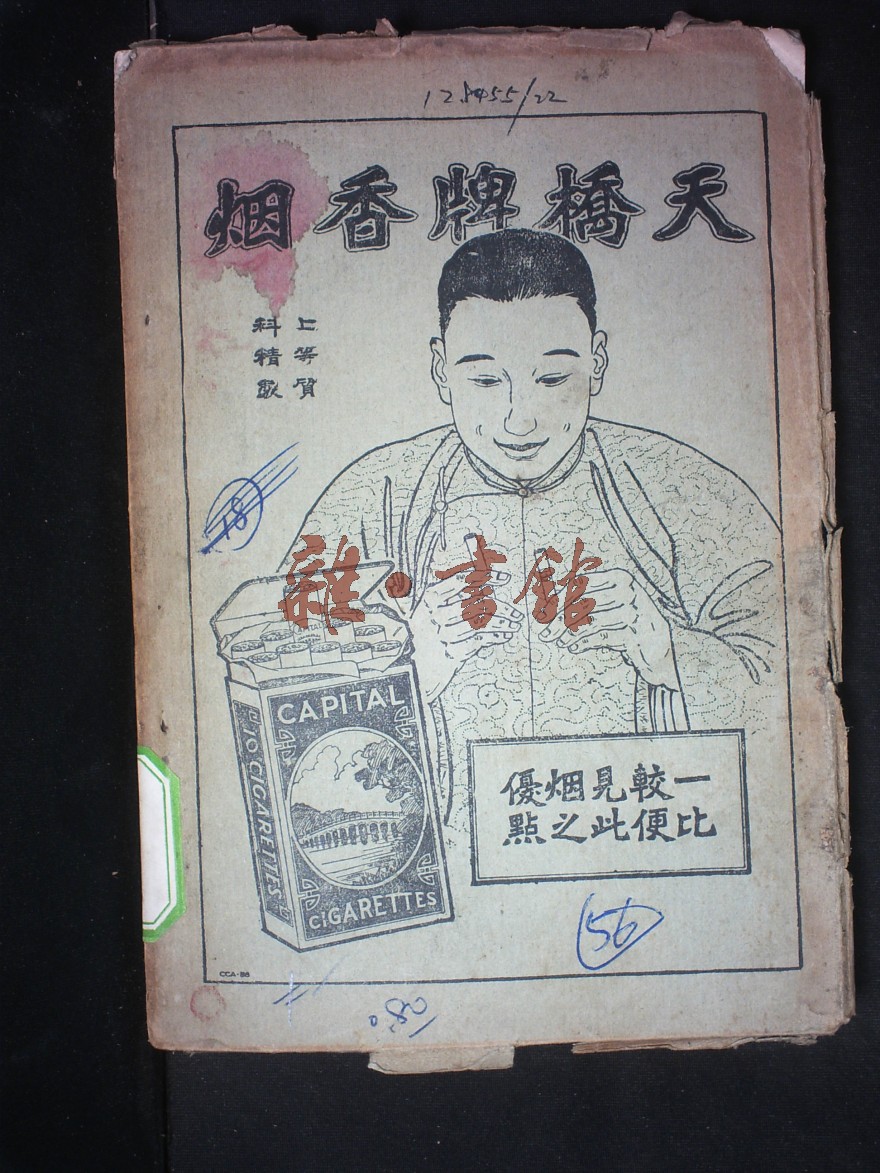 天橋牌香烟
上等質
料精製
雜·書館
CAPITAL
CIGARETTES
10 CIGARETTES
一比
較便
見此
烟之
優點
18
56
CCA-88